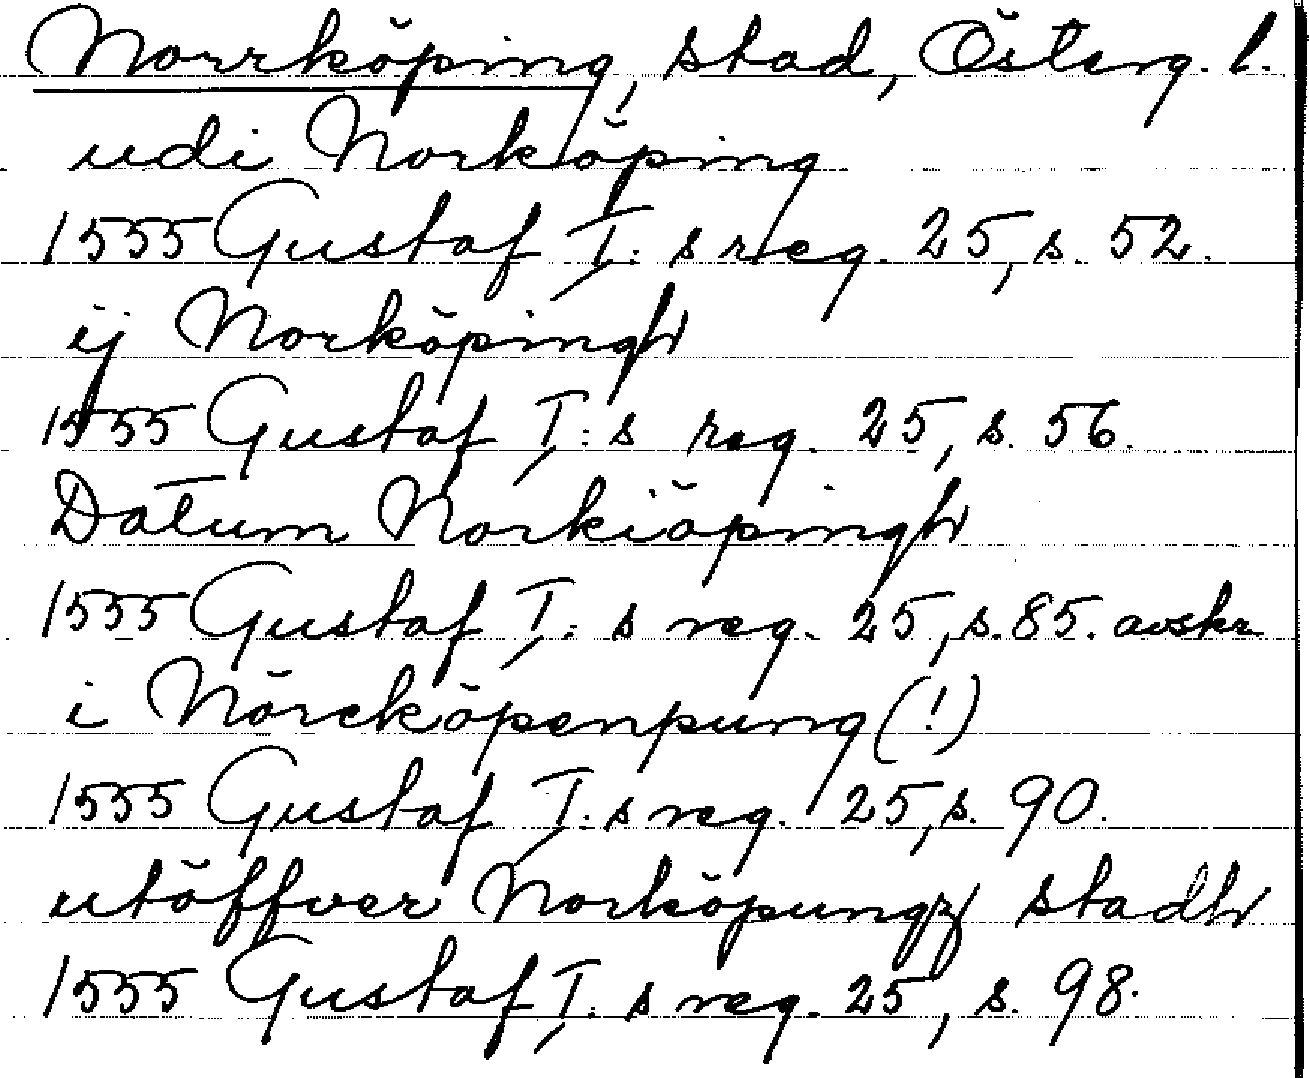 Norrköping, stad, Österg. l.
udi Norköping
1555 Gustaf I: s reg. 25, s. 52.
ij Norköpingh
1555 Gustaf I: s reg. 25, s. 56.
Datum Norkiöpingh
1555 Gustaf I: s reg. 25, s. 85. avskr
i Nörcköpenpung (!)
1555 Gustaf I: s reg. 25, s. 90.
utöffver Norköpungz stadh
1555 Gustaf I: s reg. 25, s. 98.